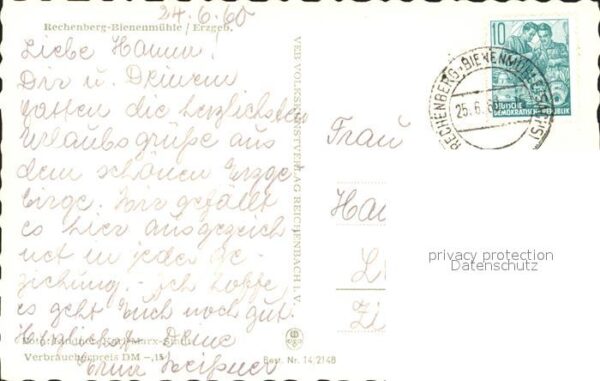 24.6.60
Rechenberg-Bienenmühle / Erzgeb.
Liebe Hanna!
Dir u. Deinem
Gatten die herzlichsten
Urlaubsgrüße aus
dem schönen Erzge
birge. Mir gefällt
es hier ausgezeich
net in jeder Be
ziehung. Ich hoffe,
es geht Euch noch gut.
Herzlichst Deine
Erna
Verbraucherpreis DM -,15
VEB VOLKSKUNSTVERLAG REICHENBACH I. V.
Best. Nr. 14 2148
Frau
10
DEUTSCHE
DEMOKRATISCHE REPUBLIK
RECHENBERG-BIENENMÜHLE
25.6.6
privacy protection
Datenschutz